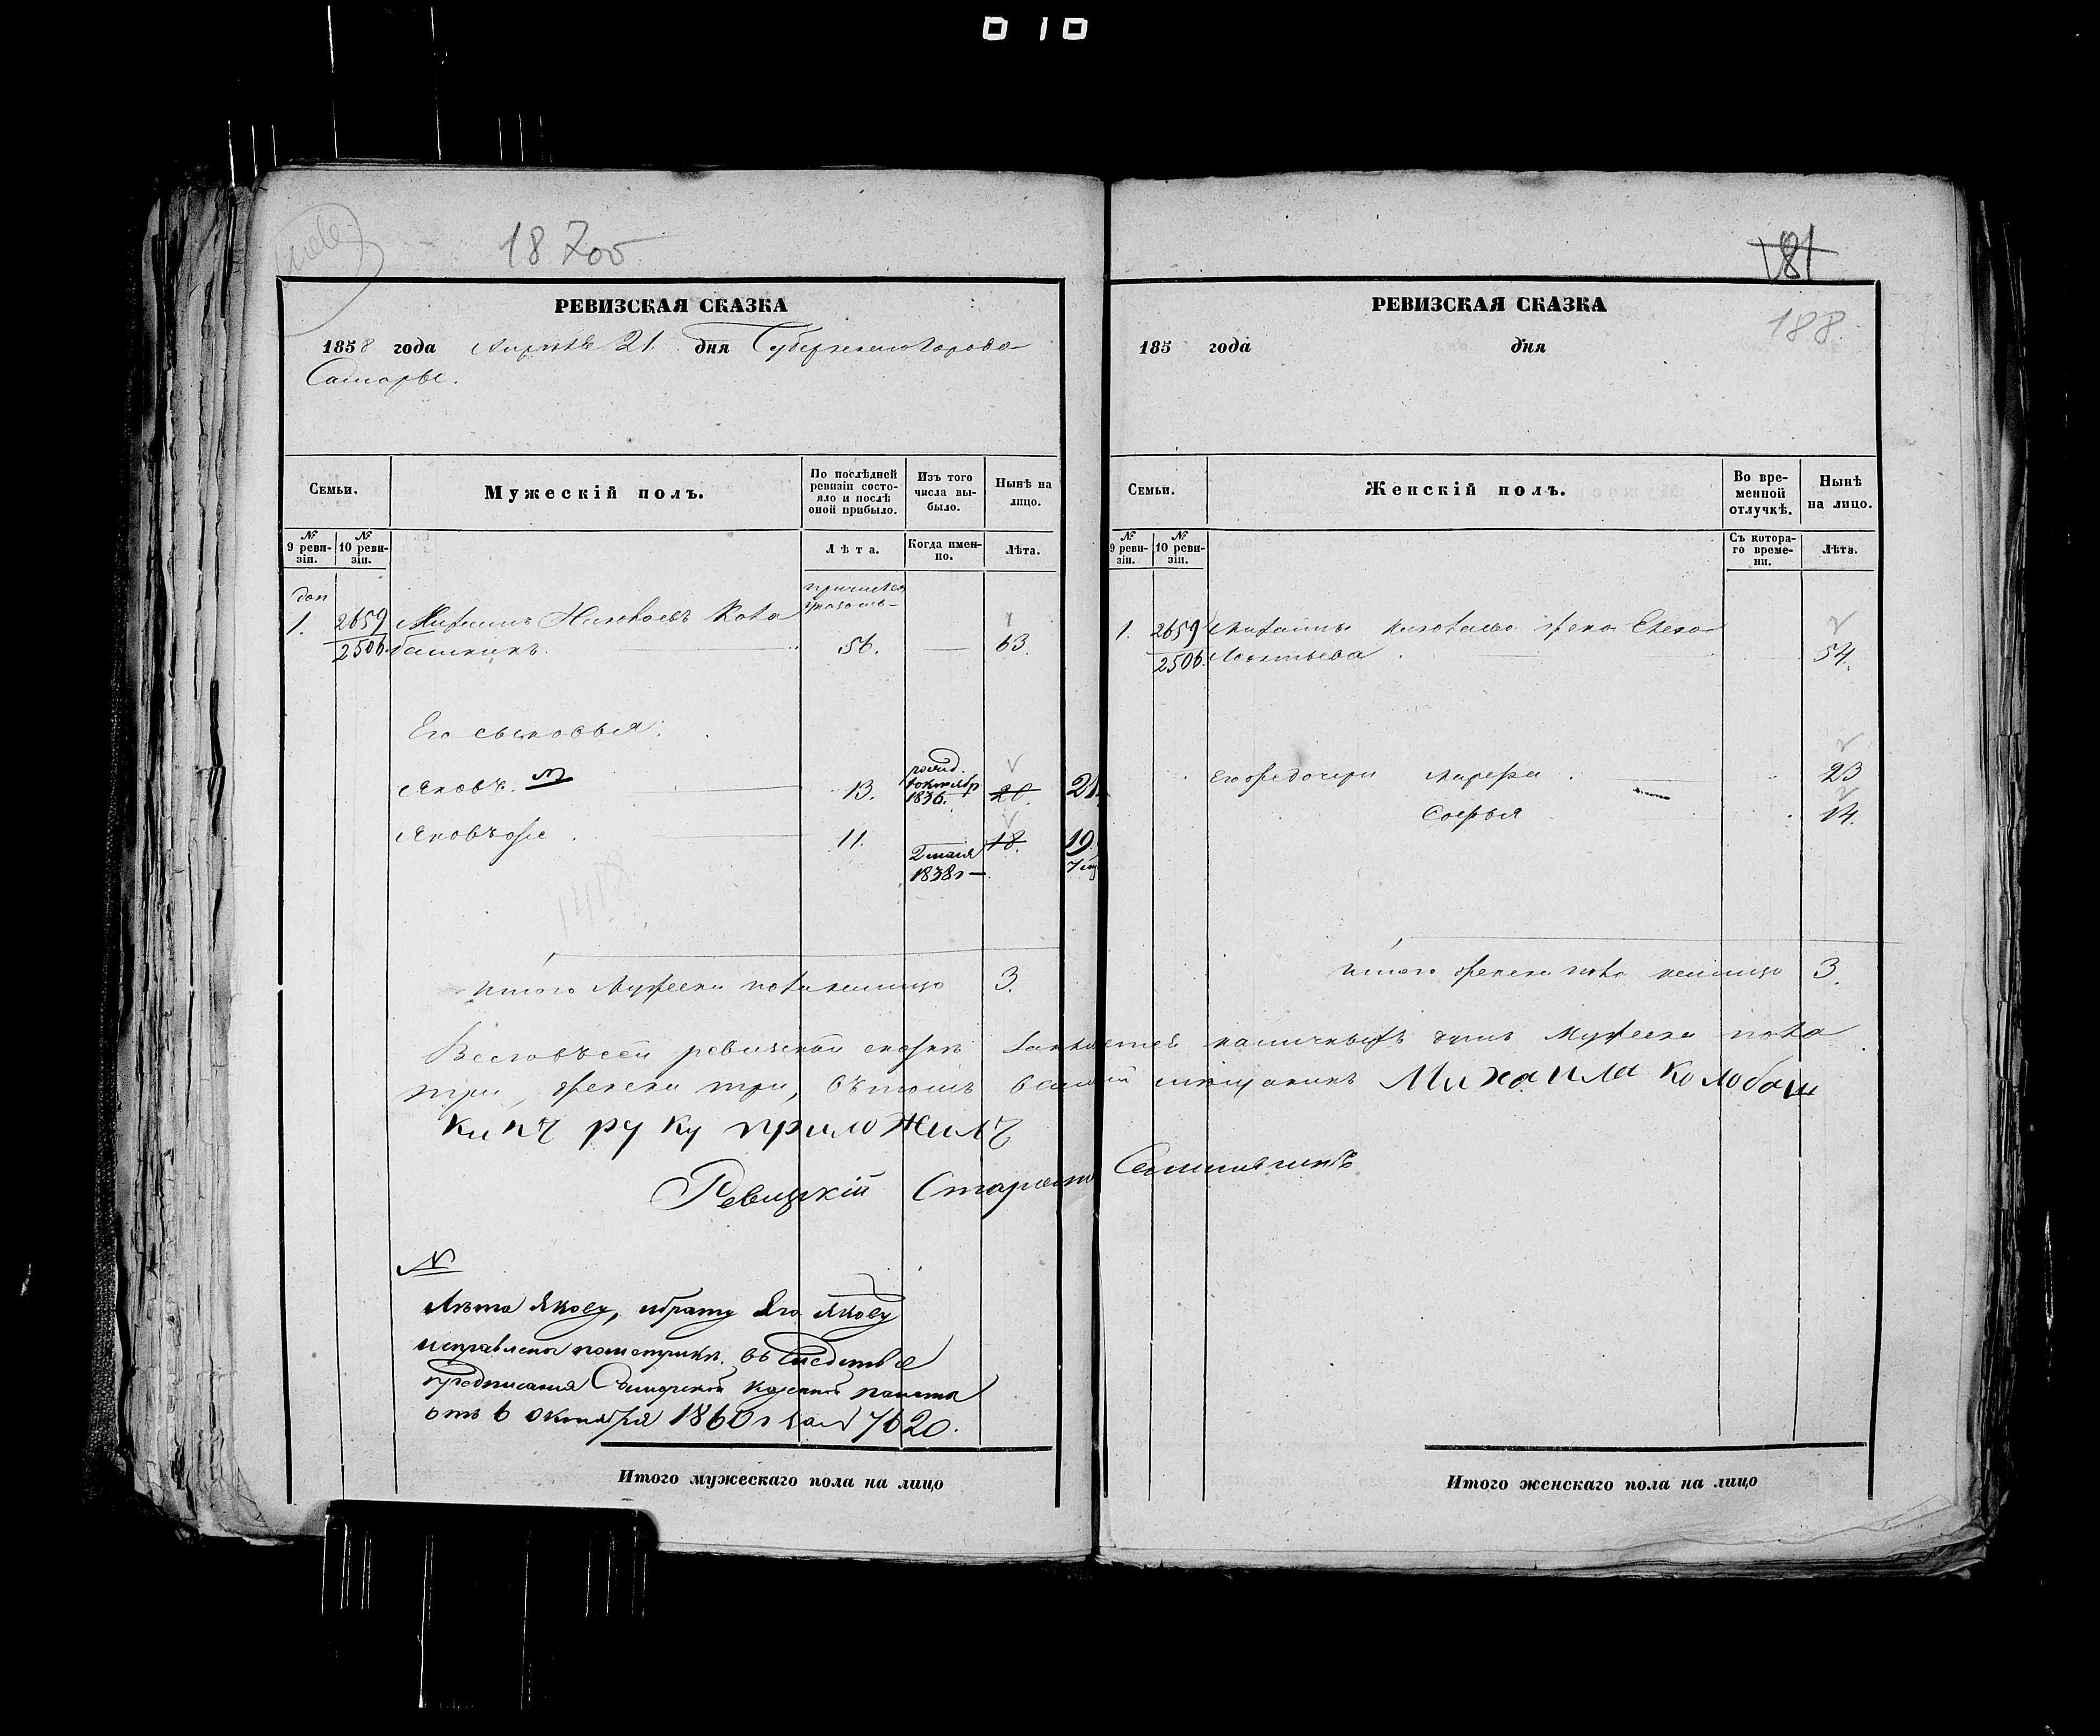 010
18 700
РЕВИЗСКАЯ СКАЗКА
1858 года Апреля 21 дня Губернского Города
Самары.
Семьи.
Мужескій полъ.
По послѣдней ревизіи состояло и послѣ оной прибыло.
Изъ того числа выбыло.
Нынѣ на лицо.
№ 9 ревизіи.
№ 10 ревизіи.
Лѣта.
Когда именно.
Лѣта.
доп
1. 2659 Михаилъ Кола
2506. башкинъ. 56. — 63.
Его сыновья:
Яковъ. N 13. рожд. 1836. 20. 21.
Яковъ же 11. 2 мая 1838 г — 18. 19.
Итого Мужеска пола налицо 3.
РЕВИЗСКАЯ СКАЗКА
181
188.
185 года дня
Семьи.
Женскій полъ.
Во временной отлучкѣ.
Нынѣ на лицо.
№ 9 ревизіи.
№ 10 ревизіи.
Съ котораго времени.
Лѣта.
1. 2659 Михаила жена Елена
2506. Леонтьева 54.
Его же дочери 23
Софья 14.
Итого женска пола налицо 3.
Всего въ сей ревизской сказкѣ наличныхъ душъ Мужеска пола
три, женска три, въ томъ мещанинъ Михаила Колобаш
кинъ руку приложилъ
Ревизкій Староста
N
Лѣта Якову, и брату Его Якову
исправлены по метрики. въ следствіе
предписания Самарской Казенной палаты
отъ 6 октября 1860 г за № 7620.
Итого мужескаго пола на лицо
Итого женскаго пола на лицо